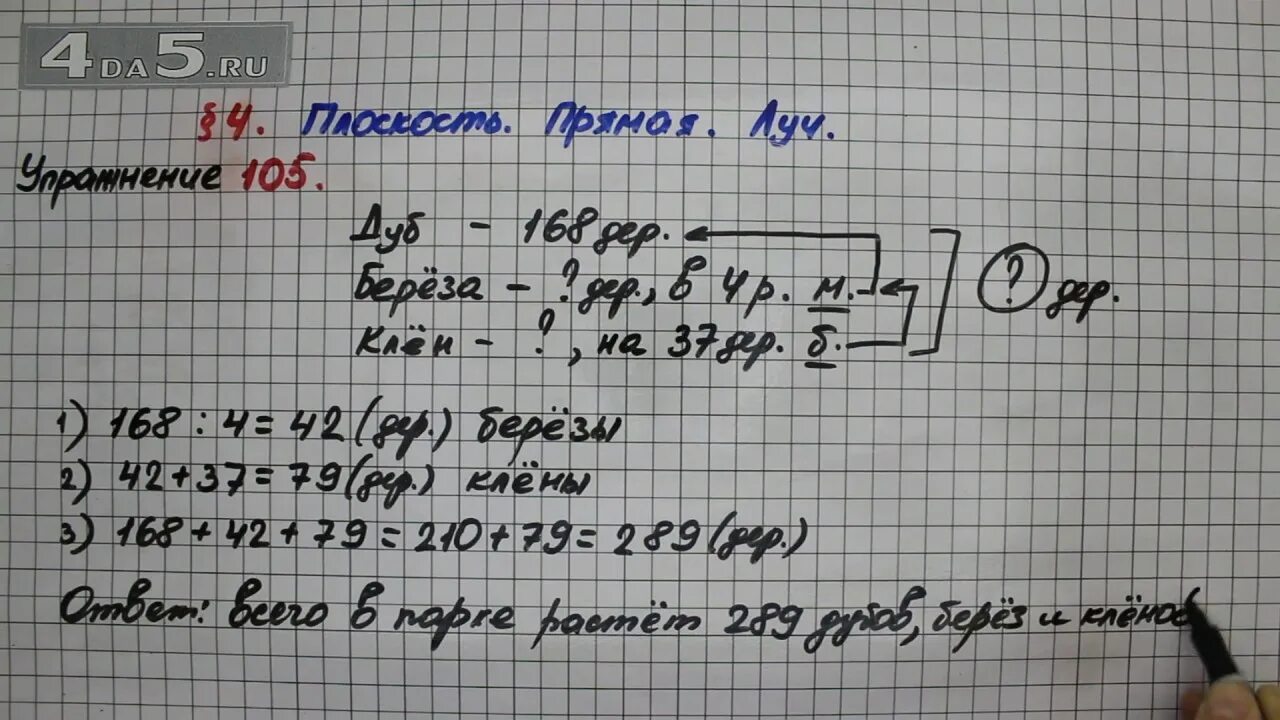 4DA5.RU
§4. Плоскость. Прямая. Луч.
Упражнение 105.
Дуб - 168 дер.
Берёза - ? дер., в 4 р. м.
Клён - ?, на 37 дер. б.
? дер.
1) 168 : 4 = 42 (дер.) берёзы
2) 42 + 37 = 79 (дер.) клёны
3) 168 + 42 + 79 = 210 + 79 = 289 (дер.)
Ответ: всего в парке растёт 289 дубов, берёз и клёнов